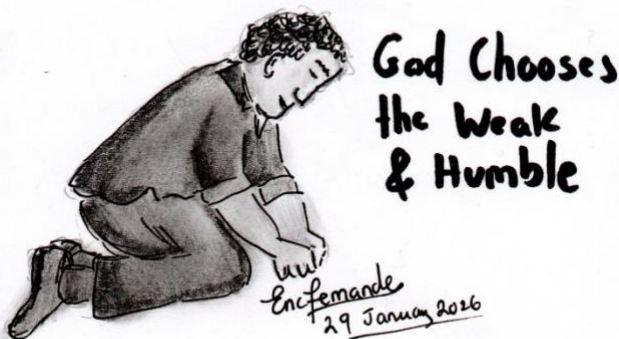 God Chooses
the Weak
& Humble
Eric Fernande
29 January 2026